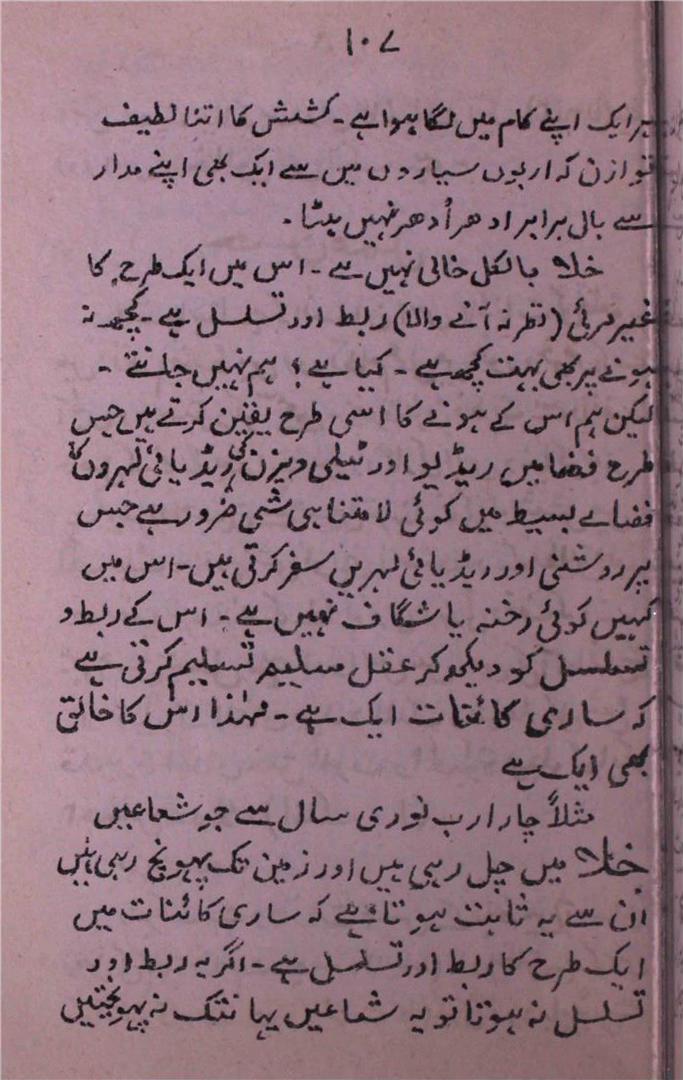 ۱۰۷
ہر ایک اپنے کام میں لگا ہوا ہے۔ کشش کا اتنا لطیف
توازن کہ اربوں سیاروں میں سے ایک بھی اپنے مدار
سے بال برابر ادھر اُدھر نہیں ہٹتا۔
خلا بالکل خالی نہیں ہے۔ اس میں ایک طرح کا
غیر مرئی (نظر نہ آنے والا) ربط اور تسلسل ہے۔ کچھ نہ
ہونے پر بھی بہت کچھ ہے۔ کیا ہے؟ ہم نہیں جانتے۔
لیکن ہم اس کے ہونے کا اسی طرح یقین کرتے ہیں جس
طرح فضا میں ریڈیو اور ٹیلی ویزن کی ریڈیائی لہروں کا
فضائے بسیط میں کوئی لامتناہی شئی ضرور ہے جس
پر روشنی اور ریڈیائی لہریں سفر کرتی ہیں۔ اس میں
کہیں کوئی رخنہ یا شگاف نہیں ہے۔ اس کے ربط و
تسلسل کو دیکھ کر عقل سلیم تسلیم کرتی ہے
کہ ساری کائنات ایک ہے۔ لہٰذا اس کا خالق
بھی ایک ہے
مثلاً چار ارب نوری سال سے جو شعاعیں
خلا میں چل رہی ہیں اور زمین تک پہونچ رہی ہیں
ان سے یہ ثابت ہوتا ہے کہ ساری کائنات میں
ایک طرح کا ربط اور تسلسل ہے۔ اگر یہ ربط اور
تسلسل نہ ہوتا تو یہ شعاعیں یہانتک نہ پہونچتیں